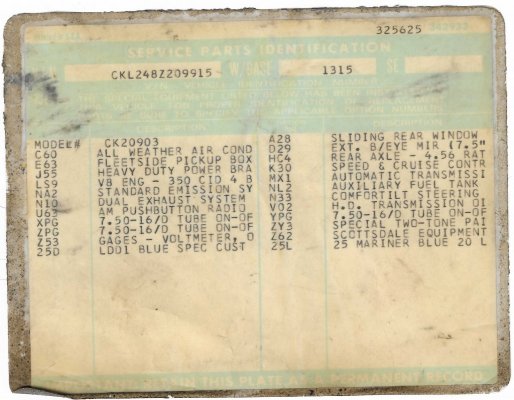 325625
SERVICE PARTS IDENTIFICATION
CKL248Z209915 W/BASE 1315 SE
MODEL# CK20903
C60 ALL WEATHER AIR COND
E63 FLEETSIDE PICKUP BOX
J55 HEAVY DUTY POWER BRA
LS9 V8 ENG - 350 CID 4 B
NA2 STANDARD EMISSION SY
N10 DUAL EXHAUST SYSTEM
U63 AM PUSHBUTTON RADIO
XPG 7.50-16/D TUBE ON-OF
ZPG 7.50-16/D TUBE ON-OF
Z53 GAGES - VOLTMETER, O
25D LDD1 BLUE SPEC CUST
A28 SLIDING REAR WINDOW
D29 EXT. B/EYE MIR (7.5"
HC4 REAR AXLE - 4.56 RAT
K30 SPEED & CRUISE CONTR
MX1 AUTOMATIC TRANSMISSI
NL2 AUXILIARY FUEL TANK
N33 COMFORTILT STEERING
VO2 H.D. TRANSMISSION OI
YPG 7.50-16/D TUBE ON-OF
ZY3 SPECIAL TWO-TONE PAI
Z62 SCOTTSDALE EQUIPMENT
25L 25 MARINER BLUE 20 L
THIS PLATE
PERMANENT RECORD